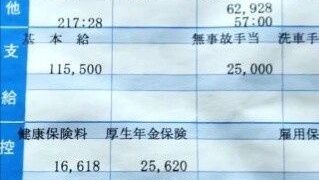 他
62,928
217:28 57:00
基本給 無事故手当 洗車手
支
115,500 25,000
給
健康保険料 厚生年金保険 雇用保
控
16,618 25,620